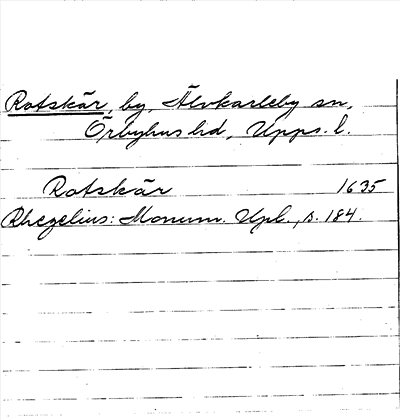 Rotskär, by, Älvkarleby sn,
Örbyhus hd, Upps. l.
Rotskär 1635
Rhezelius: Monum. Upl., s. 184.